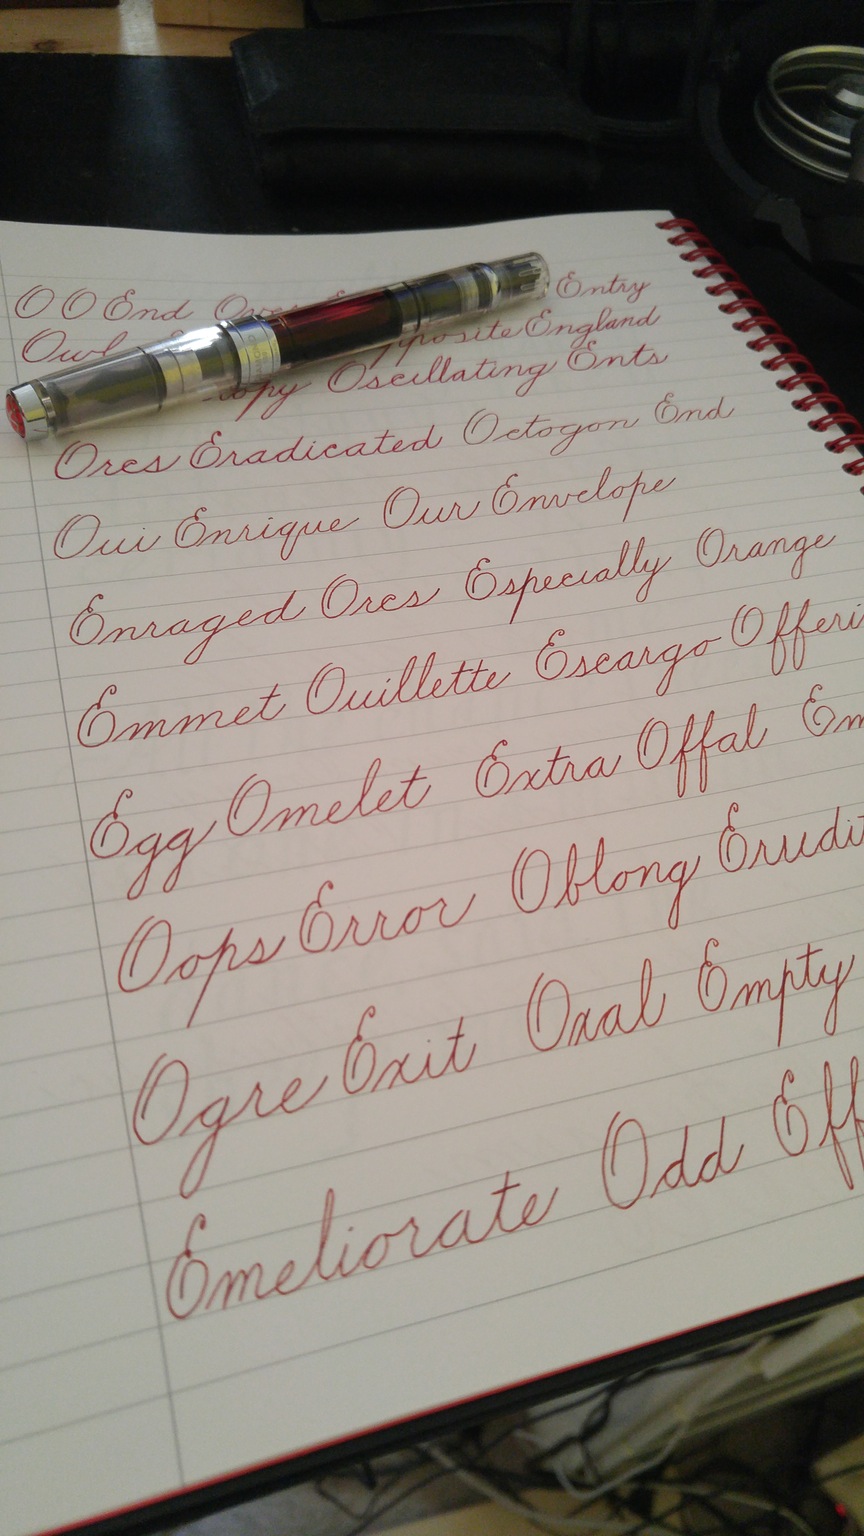 O O End Entry
Owl Opposite England
Oscillating Ents
Orcs Eradicated Octogon End
Oui Enrique Our Envelope
Enraged Orcs Especially Orange
Emmet Ouillette Escargo Offeri
Egg Omelet Extra Offal Em
Oops Error Oblong Erudit
Ogre Exit Oxal Empty
Emeliorate Odd Eff